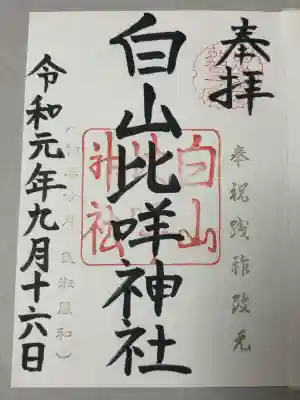 奉拝
奉祝践祚改元
白山比咩神社
白山比咩神社
令和元年九月十六日